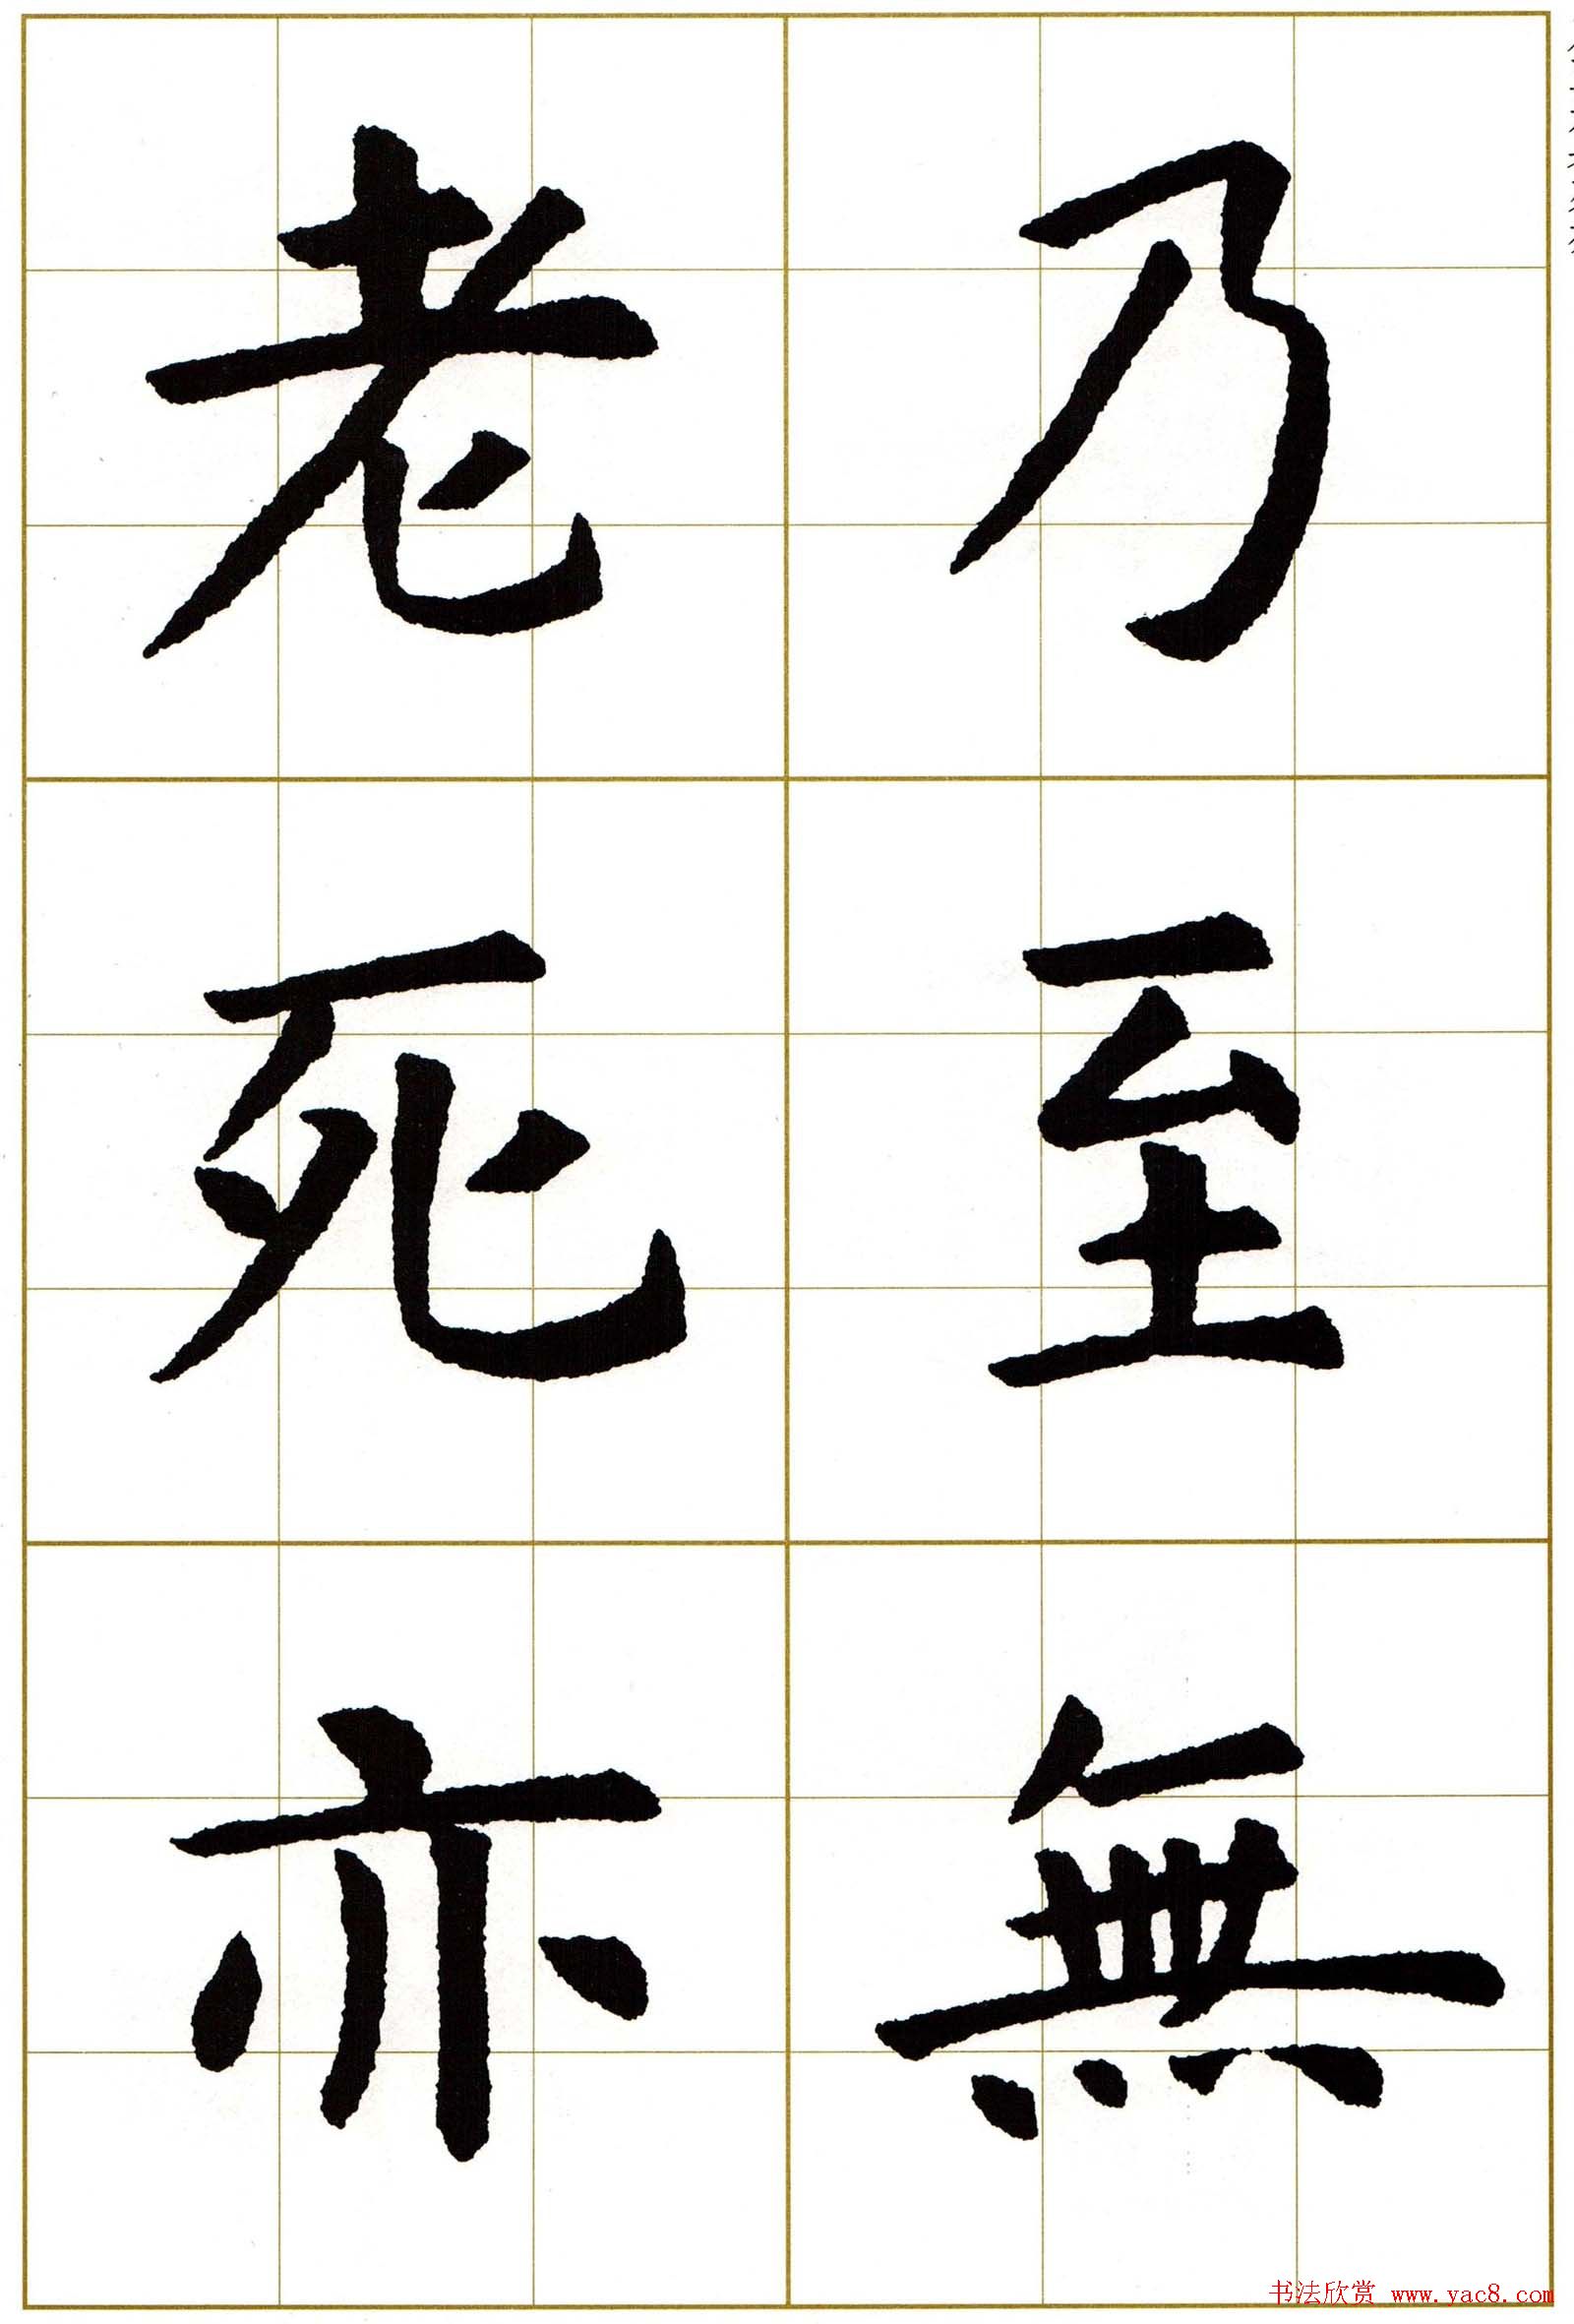 乃至無
老死亦
书法欣赏 www.yac8.com